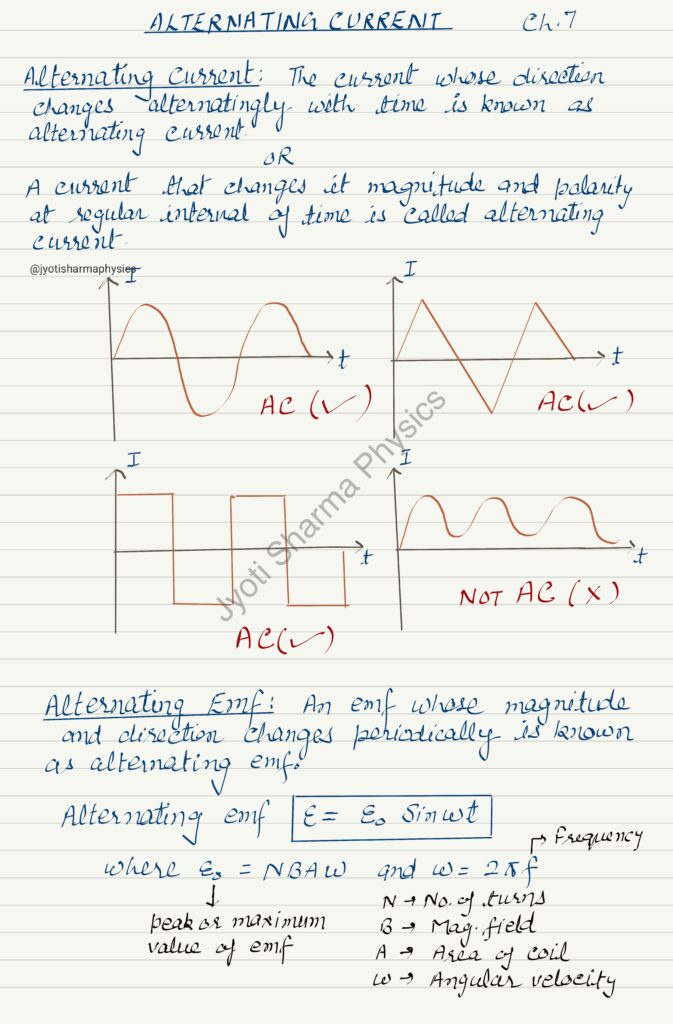 ALTERNATING CURRENT Ch.7
Alternating Current: The current whose direction
changes alternatingly with time is known as
alternating current.
OR
A current that changes it magnitude and polarity
at regular internal of time is called alternating
current.
@jyotisharmaphysics
I
t
AC (✓)
I
t
AC (✓)
I
t
AC (✓)
I
t
NOT AC (X)
Jyoti Sharma Physics
Alternating Emf: An emf whose magnitude
and direction changes periodically is known
as alternating emf.
Alternating emf ε = ε₀ Sin ωt
→ Frequency
where ε₀ = NBAω and ω = 2πf
↓
peak or maximum
value of emf
N → No. of turns
B → Mag. field
A → Area of coil
ω → Angular velocity